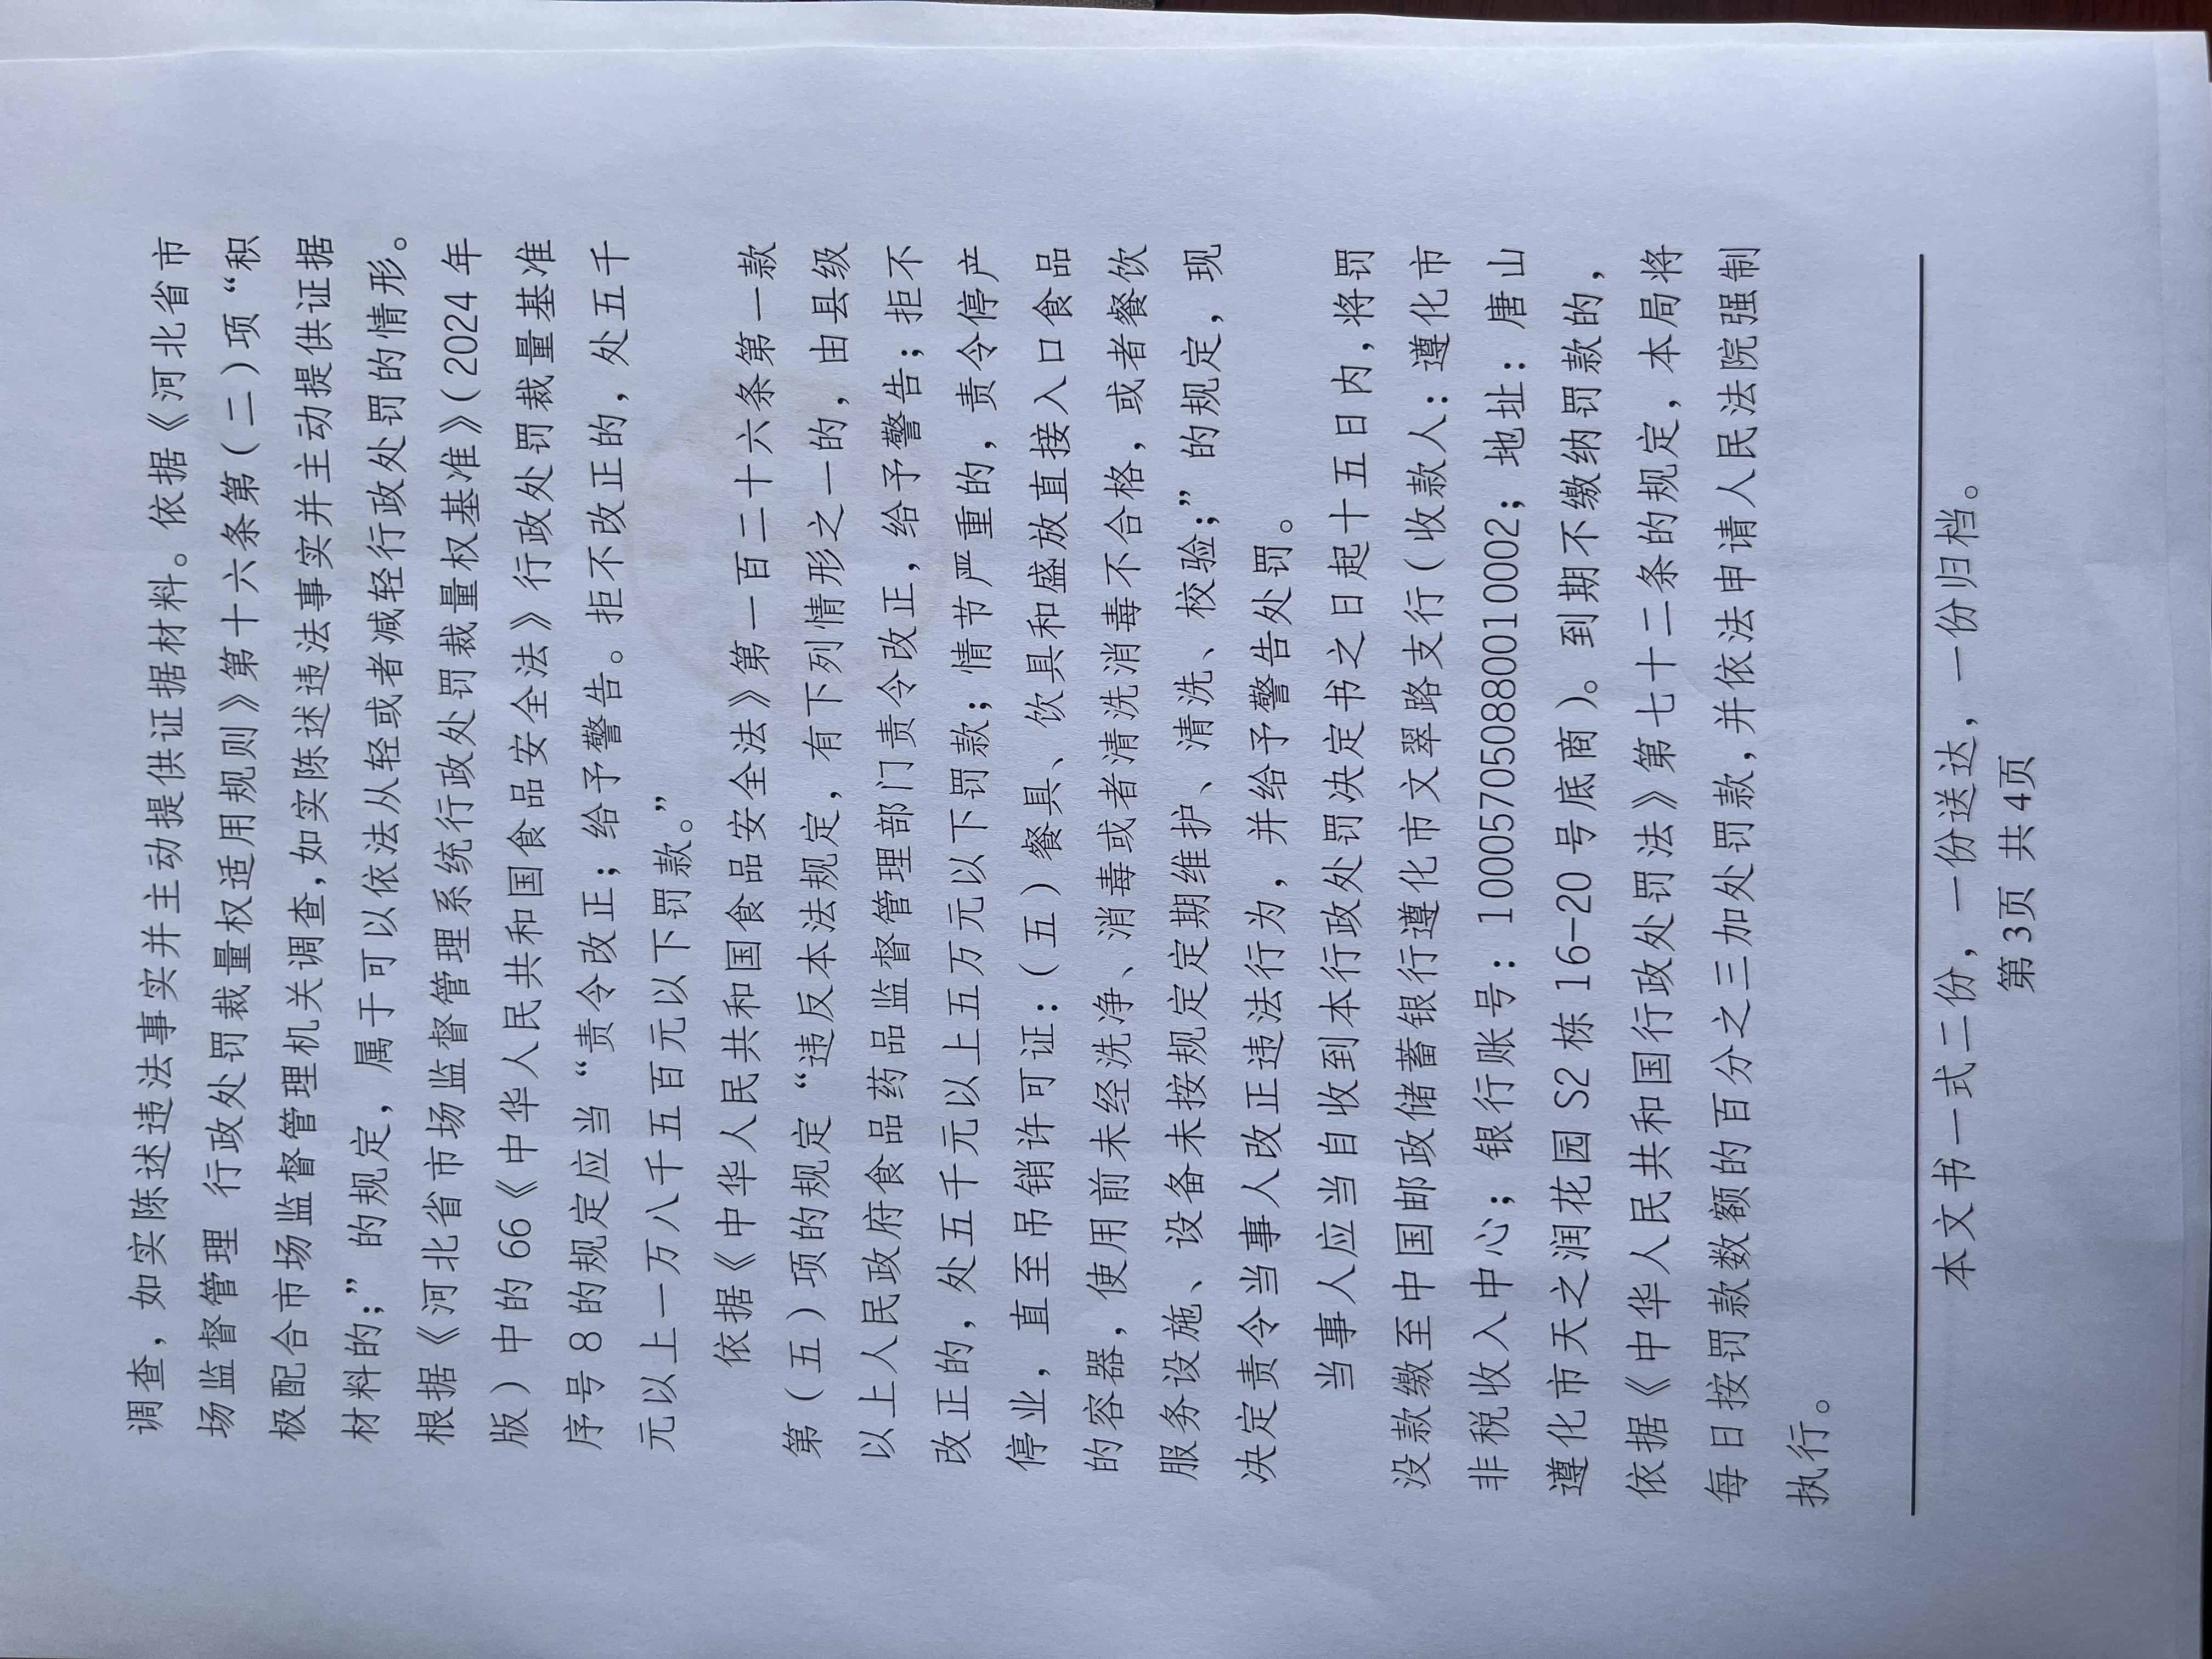 调查，如实陈述违法事实并主动提供证据材料。依据《河北省市
场监督管理 行政处罚裁量权适用规则》第十六条第（二）项“积
极配合市场监督管理机关调查,如实陈述违法事实并主动提供证据
材料的;”的规定，属于可以依法从轻或者减轻行政处罚的情形。
根据《河北省市场监督管理系统行政处罚裁量权基准》(2024年
版）中的66《中华人民共和国食品安全法》行政处罚裁量基准
序号8的规定应当“责令改正；给予警告。拒不改正的，处五千
元以上一万八千五百元以下罚款。”
依据《中华人民共和国食品安全法》第一百二十六条第一款
第（五）项的规定“违反本法规定，有下列情形之一的，由县级
以上人民政府食品药品监督管理部门责令改正，给予警告；拒不
改正的，处五千元以上五万元以下罚款；情节严重的，责令停产
停业，直至吊销许可证：（五）餐具、饮具和盛放直接入口食品
的容器，使用前未经洗净、消毒或者清洗消毒不合格，或者餐饮
服务设施、设备未按规定定期维护、清洗、校验;”的规定，现
决定责令当事人改正违法行为，并给予警告处罚。
当事人应当自收到本行政处罚决定书之日起十五日内,将罚
没款缴至中国邮政储蓄银行遵化市文翠路支行（收款人：遵化市
非税收入中心；银行账号：100057050880010002；地址：唐山
遵化市天之润花园S2栋16-20号底商）。到期不缴纳罚款的，
依据《中华人民共和国行政处罚法》第七十二条的规定，本局将
每日按罚款数额的百分之三加处罚款,并依法申请人民法院强制
执行。
本文书一式二份，一份送达，一份归档。
第3页 共4页